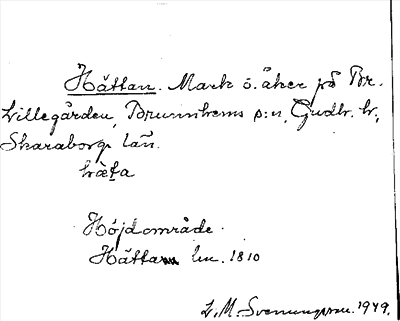 Hättan. Mark o. åker på Br.
Lillegården, Brunnhems s:n, Gudh. h.,
Skaraborgs län.
hæ̀ta
Höjdområde.
Hättan lm. 1810
L. M. Svenungsson. 1949.